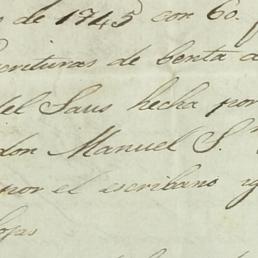 de 1745 con 60.
escrituras de benta
del Saus hecha por
don Manuel S.
por el escribano
hojas